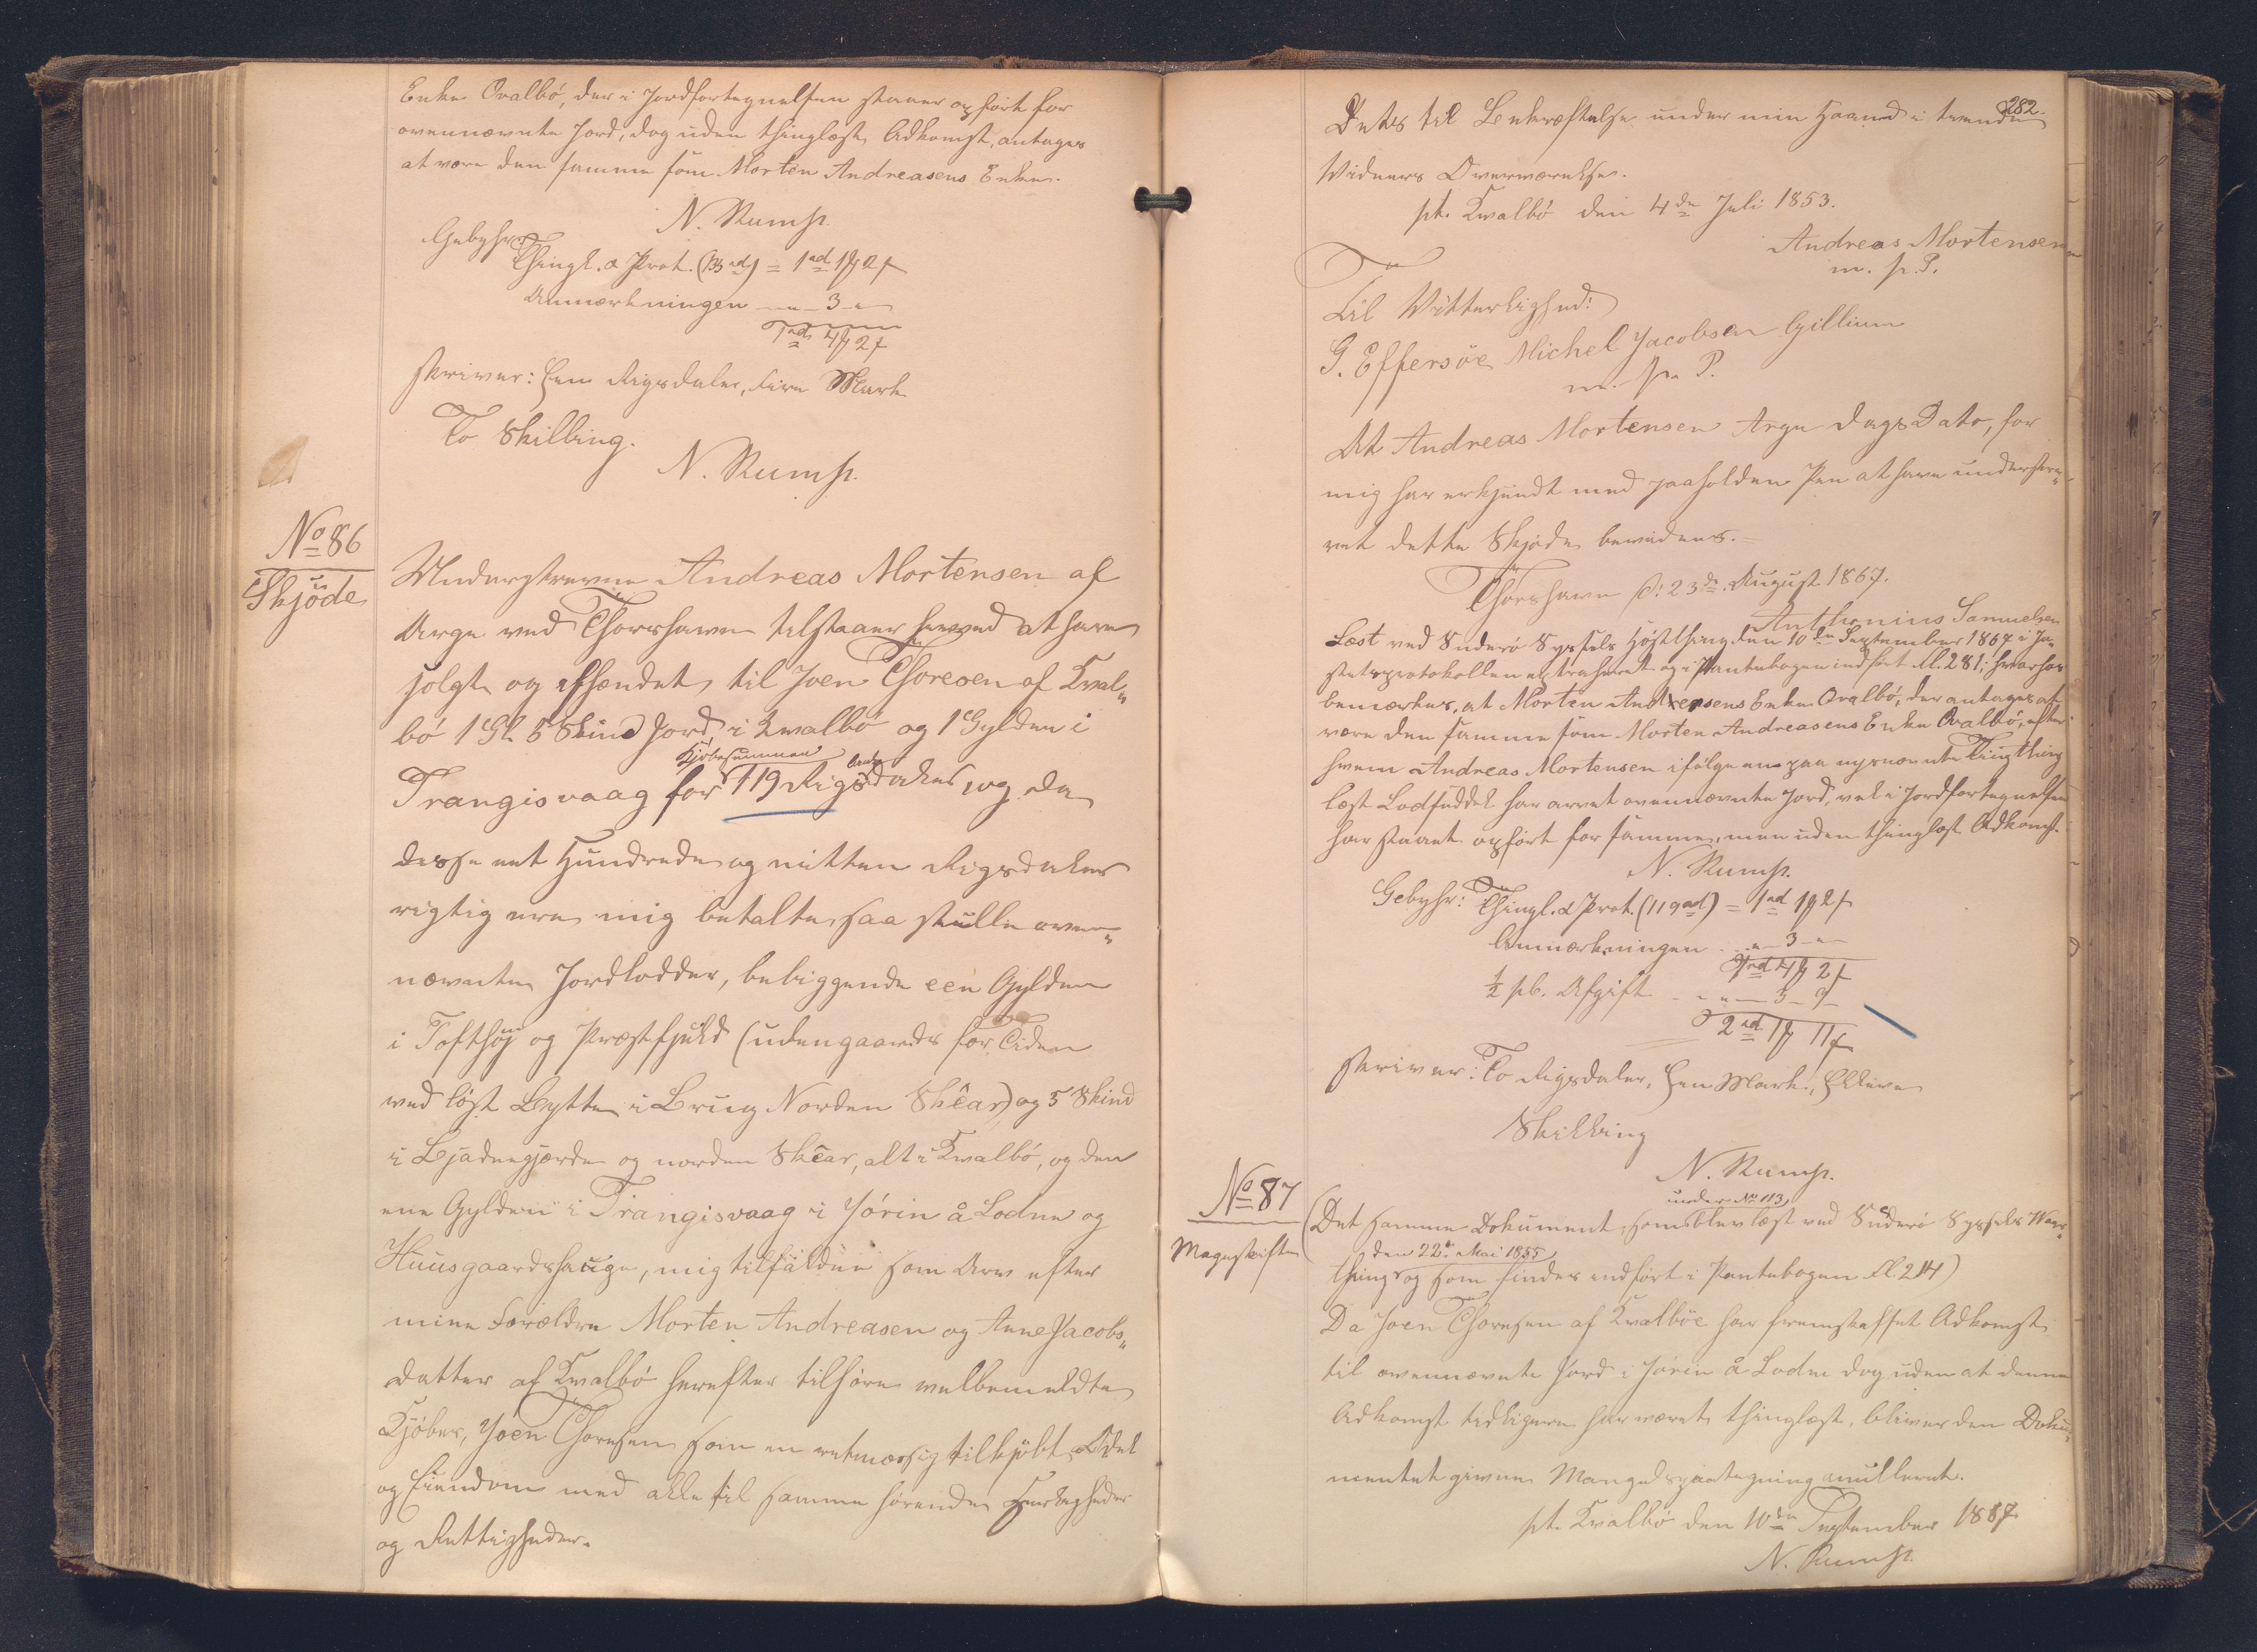 Enke Qvalbö, der i Jordfortegnelsen staaer opført for
ovennævnte Jord, dog uden thinglæst Adkomst, antages
at være den samme som Morten Andreasens Enke.
N. Rump.
Gebyhr:
Thingl. & Prot. (133 rd) = 1 rd 1 ℳ 2 ß
Anmærkningen — " — 3 — "
1 rd 4 ℳ 2 ß
skriver: Een Rigsdaler, Fire Mark
To Skilling.
N. Rump.
No 86
Skjöde
Underskrevne Andreas Mortensen af
Arge ved Thorshavn tilstaaer herved at have
solgt og afhændet til Joen Thoresen af Kval„
bö 1 Gl. 5 Skind Jord i Kvalbö og 1 Gylden i
Kjöbesummen
Trangisvaag for 119 Rigsdaler, og da
disse eet Hundrede og nitten Rigsdaler
rigtig ere mig betalte, saa skulle oven„
nævnte Jordlodder, beliggende een Gylden
i Tofthöj og Præstfjeld (udengaards for Tiden
ved løst Bytte i Brug Norden Skêar) og 5 Skind
i Bjadnegjærde og norden Skêar, alt i Kvalbö, og den
ene Gylden i Trangisvaag i Jórin å Lodne og
Huusgaardshauge, mig tilfaldne som Arv efter
mine Forældre Morten Andreasen og Anne Jacobs„
datter af Kvalbö herefter tilhöre velbemeldte
Kjöber, Joen Thoresen som en retmæssig tilkjöbt Odel
og Eiendom med alle til samme hörende Herligheder
og Rettigheder.
282.
Dette til Bekræftelse under min Haand i tvende
Vidners Overværelse.
pt. Kvalbö den 4de Juli 1853.
Andreas Mortensen
m. p. P.
Til Vitterlighed:
G. Effersöe Michel Jacobsen Gillium
m. p. P.
At Andreas Mortensen Arge Dags Dato, for
mig har erkjendt med paaholden Pen at have underskre„
vet dette Skjöde bevidnes.
Thorshavn d: 23de August 1867.
Anthonius Samuelsen
Læst ved Suderö Syssels Höstthing den 10de September 1867 i Ju„
stitsprotokollen extraheret og i Pantebogen indfört fl. 281; hvorhos
bemærkes, at Morten Andreasens Enke Qvalbö, der antages at
være den samme som Morten Andreasens Enke Qvalbö, efter
hvem Andreas Mortensen ifölge en paa nysnævnte Ting thing
læst Lodseddel har arvet ovennævnte Jord, vel i Jordfortegnelsen
har staaet opfört for samme, men uden thinglæst Adkomst.
N. Rump.
Gebyhr: Thingl. & Prot. (119 rd) = 1 rd 1 ℳ 2 ß
Anmærkningen - " — 3 — "
1 rd 4 ℳ 2 ß
½ pC. Afgift - - " — 3 — 9
2 rd 1 ℳ 11 ß
skriver: To Rigsdaler, Een Mark, Elleve
Skilling
N. Rump.
No 87
Mageskifte
under No 113,
(Det samme Dokument, som blev læst ved Suderö Syssels Vaar„
den 22de Mai 1855
thing og som findes indfört i Pantebogen fl. 214)
Da Joen Thoresen af Kvalböe har fremskaffet Adkomst
til ovennævnte Jord i Jórin å Lodne dog uden at denne
Adkomst tidligere har været thinglæst, bliver den Doku„
mentet givne Mangelspaategning anulleret.
pt. Kvalbö den 10de September 1867.
N. Rump.